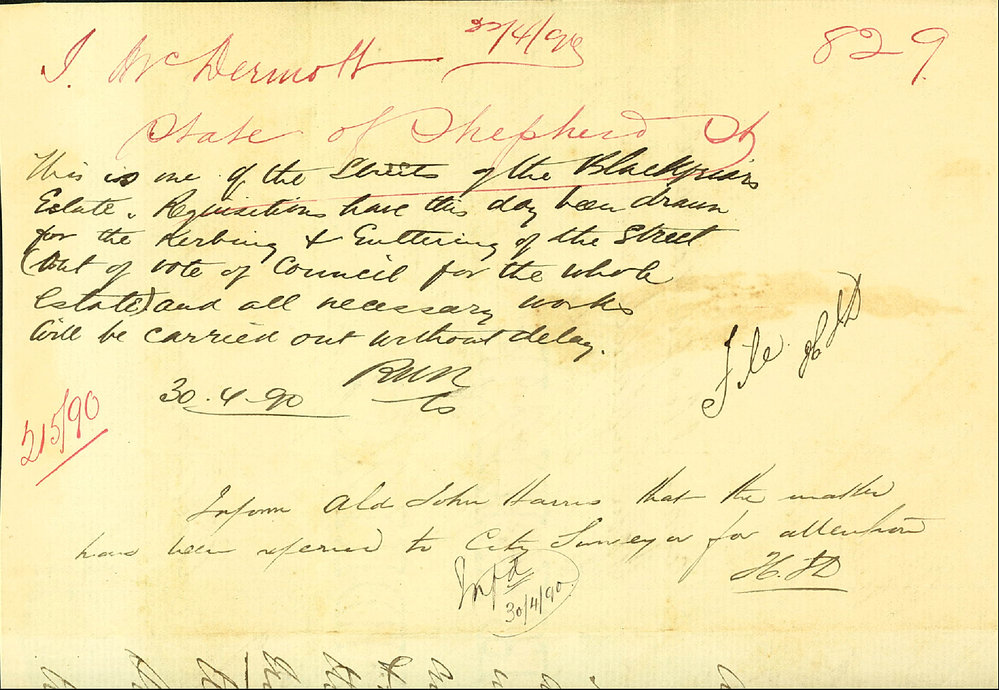 J. McDermott 22/4/90
829
State of Shepherd St
This is one of the Streets of the Blackfriars
Estate. Requisitions have this day been drawn
for the Kerbing & Guttering of the Street
(Out of vote of Council for the whole
Estate) and all necessary works
Will be carried out without delay.
30.4.90
File H.D
2/5/90
Inform Ald John Harris that the matter
has been referred to City Surveyor for attention
Infd
30/4/90